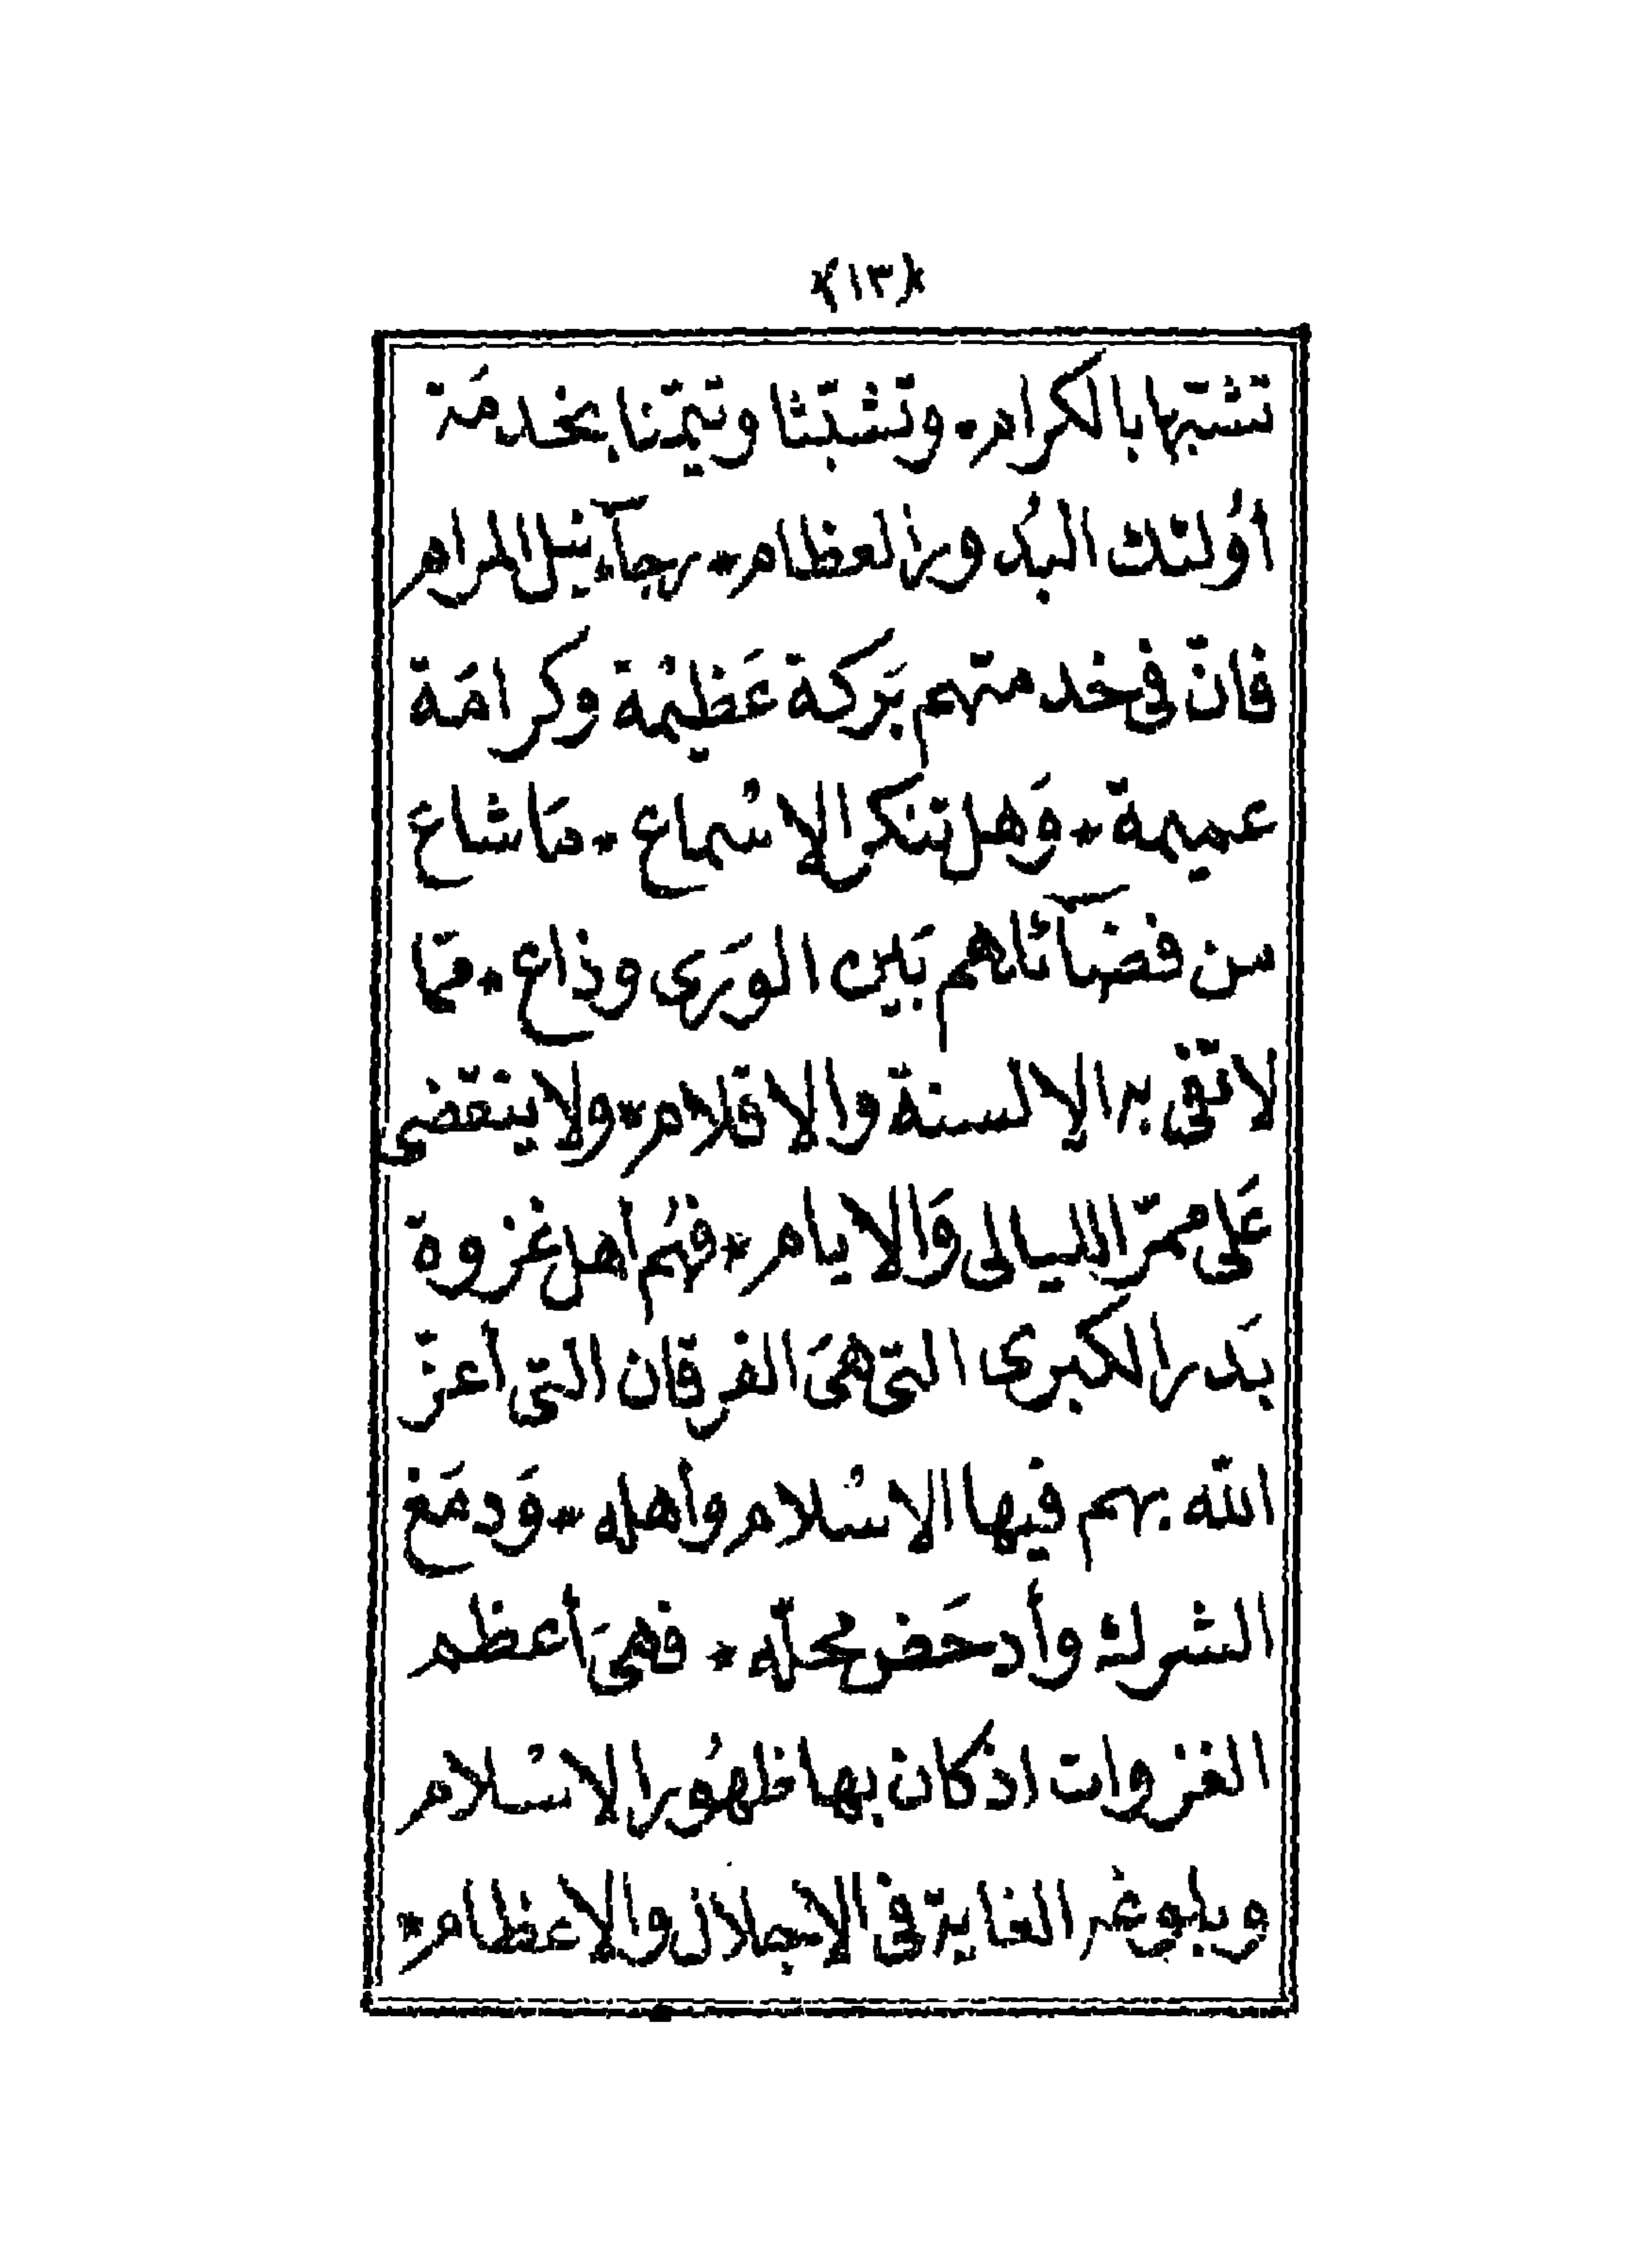 ﴿١٣﴾
تشبّها بالكرام * وتشبّثا وتيمّنا بخدمَة
أوُلئك البُدور العظام * رجآء نيل المرام
فانّ فى خدمتهم بَركة عَظيْمة وكرامَة
عميمة * وَهل تنكر الاسْماع * مَا شاع
من فضَآئلهم بَين الورَى وذاع * ممّا
لا تفى به الالسنة والاقلام * ولا ينقضى
عَلى ممرّ الليالى وَالايام * فهُم أهل غزوة
بَدر الكبرى التى هىَ الفرقان التى أعزّ
الله بهم فيها الاسْلام وأهله * وَدمَغ
الشرك وأدحَض محلّه * فهىَ أعظم
الغزوات اذ كان بها ظهُور الاسْلام
وبلوغه الغاية فى الاجلال والاعظام *